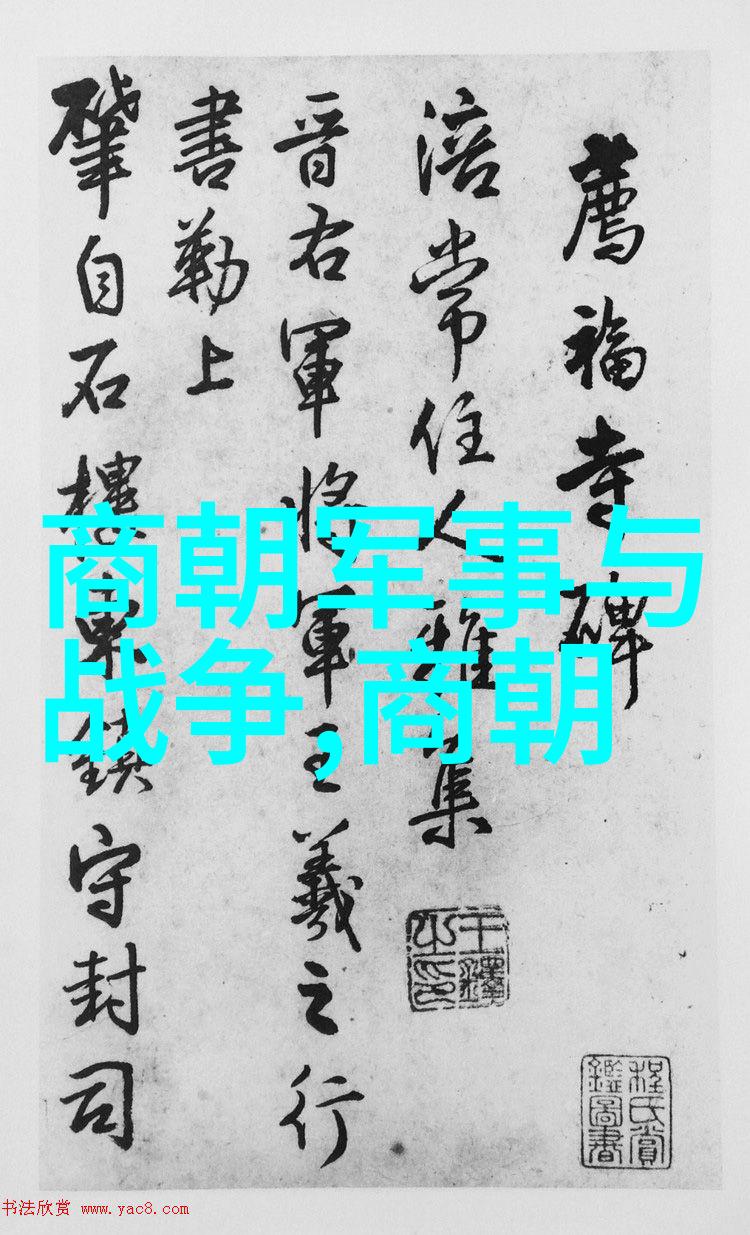 薦福寺碑
涪常住人雅集
晋右軍將軍王羲之行
書勒上
肇自石樓東鎮守封司
商朝军事与
战争,商朝
王鐸之印
程氏賞鑑圖書
书法欣赏 www.yac8.com